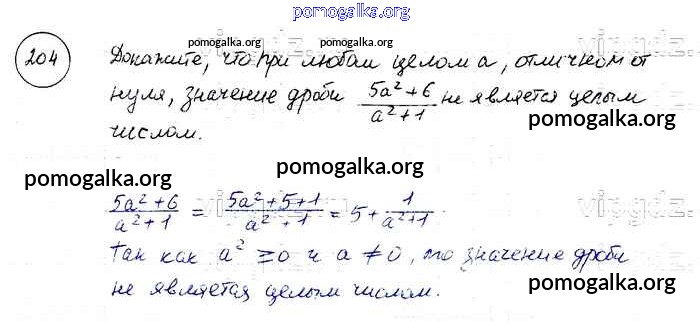 pomogalka.org
204
pomogalka.org pomogalka.org
Докажите, что при любом целом a, отличном от
нуля, значение дроби (5a²+6)/(a²+1) не является целым
числом.
pomogalka.org
pomogalka.org
pomogalka.org pomogalka.org
(5a²+6)/(a²+1) = (5a²+5+1)/(a²+1) = 5 + 1/(a²+1)
Так как a² ≥ 0 и a ≠ 0, то значение дроби
pomogalka.org
не является целым числом.
pomogalka.org